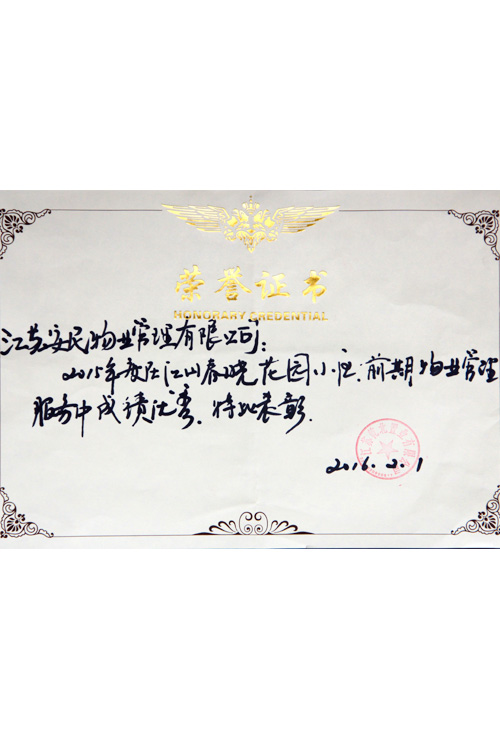 荣誉证书
HONORARY CREDENTIAL
江苏安民物业管理有限公司:
2015年度在江山春晓花园小区前期物业管理
服务中成绩优秀.特此表彰.
2016.2.1